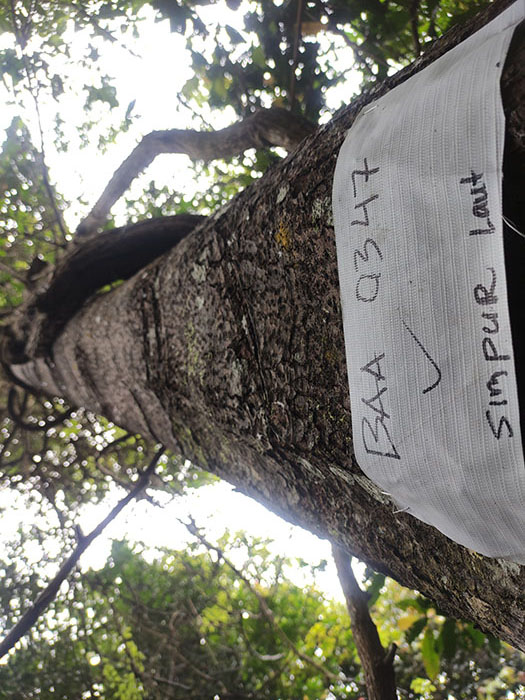 BAA 0347
✓
SIMPUR Laut